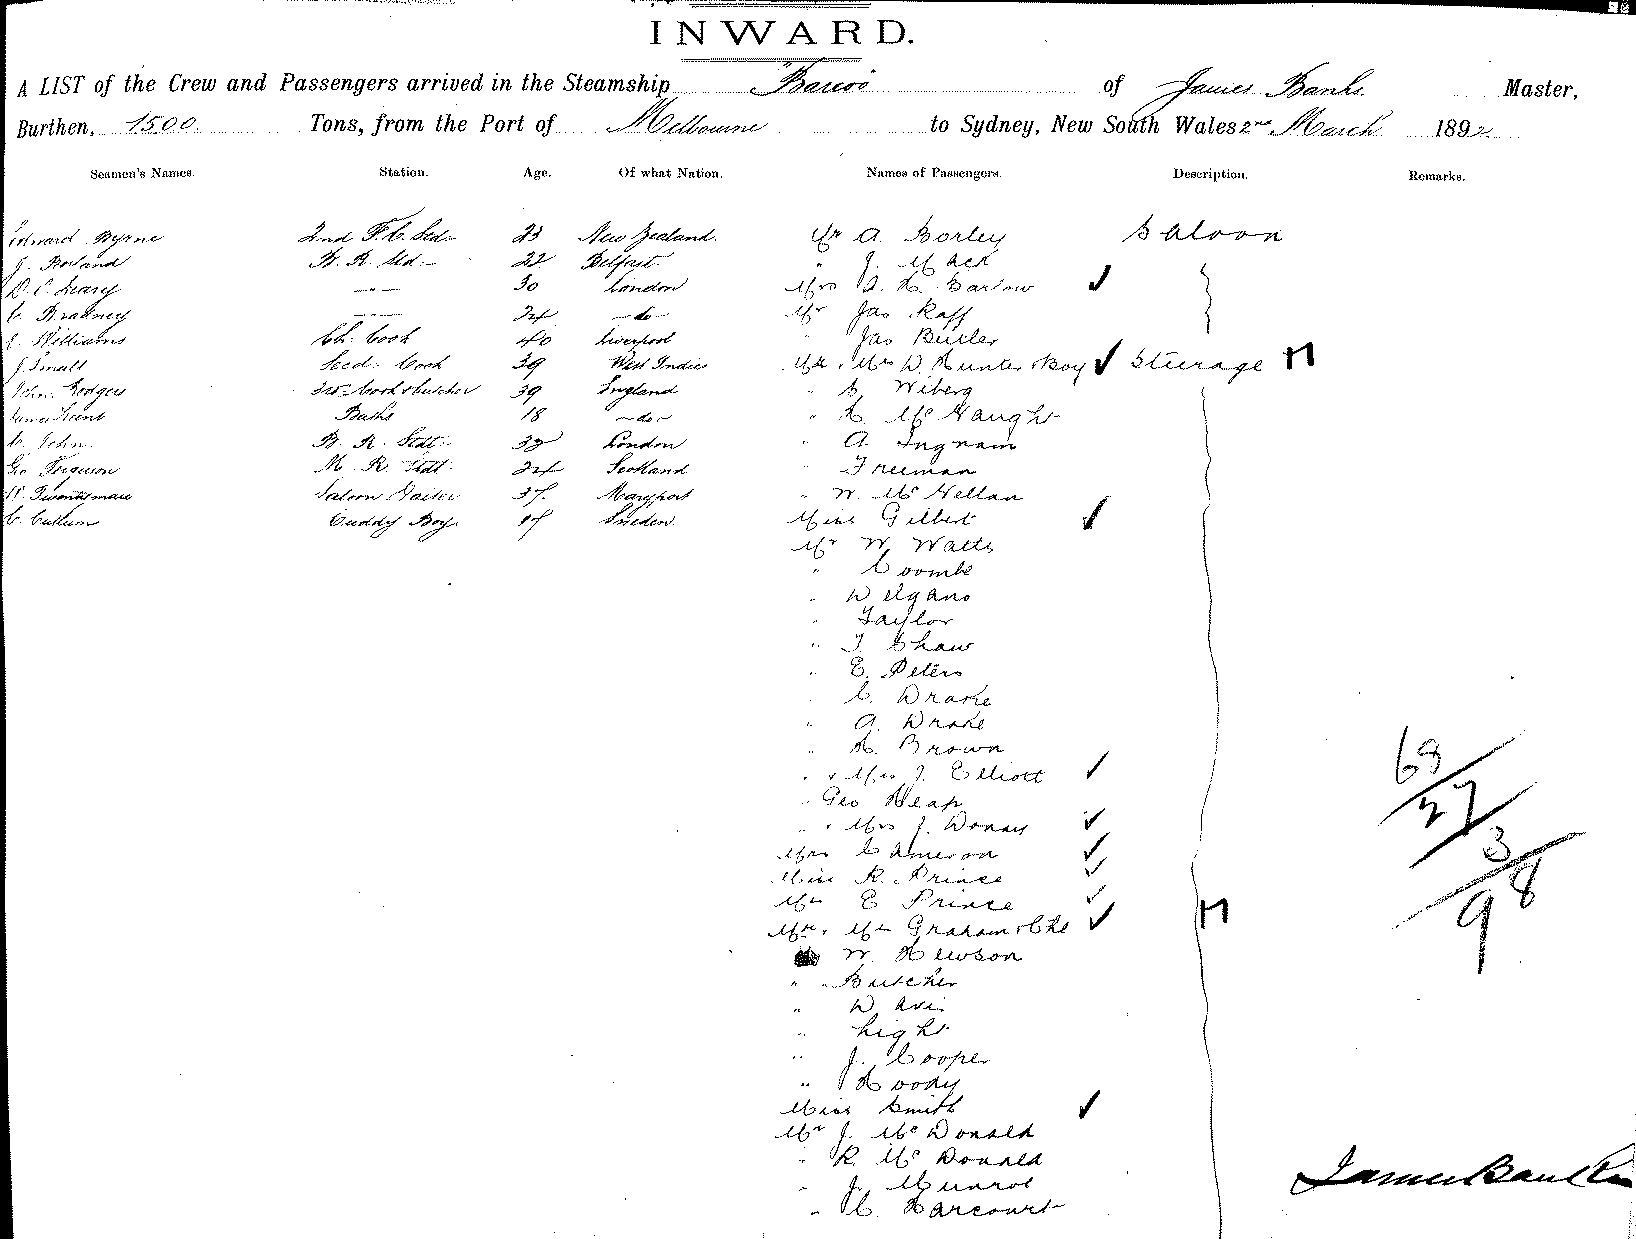 INWARD.
A LIST of the Crew and Passengers arrived in the Steamship Barcoo of James Banks Master,
Burthen, 1500 Tons, from the Port of Melbourne to Sydney, New South Wales 2nd March 1892
Seamen's Names. Station. Age. Of what Nation. Names of Passengers. Description. Remarks.
Edward Byrne 2nd F. C. Std. 23 New Zealand. Mr A. Borley Saloon
J. Borland F. R. Std. 22 Belfast. " J. Mack
D. O. Leary -"- 30 London Mrs A. H. Barlow ✓
C. Bradney -"- 24 -do- Mr Jas Raff
J. Williams Ch. Cook 40 Liverpool Jas Butler
J. Small Secd. Cook 39 West Indies Mr & Mrs D. Hunter & Boy ✓ Steerage
John Rodgers 3rd Cook & butcher 39 England " S. Wiberg
James Kent Baths 18 -do- " H. McNaught
C. John B. R. Stdt. 32 London " A. Ingram
Geo Ferguson M. R. Stdt. 24 Scotland " Freeman
W. Twentyman Saloon Waiter 37. Maryport " W. McLellan
C. Cullum Cuddy Boy. 17 Sweden. Miss Gilbert ✓
Mr W. Watts
" Coombe
" Delgano
" Taylor
" T. Shaw
" E. Peters
" C. Drake
" A. Drake
" H. Brown
" & Mrs J. Elliott ✓
" Geo Heap
" & Mrs J. Donay ✓
Mrs Cameron ✓
Miss R. Prince ✓
Mr E Prince ✓
Mr & Mrs Graham & Chd ✓
W. Hewson
" Butcher
" Davis
" Light
" J. Cooper
" Moody
Miss Smith ✓
Mr J. McDonald
" R. McDonald
" J. Munroe
" C. Harcourt
68
27
3
98
James Banks